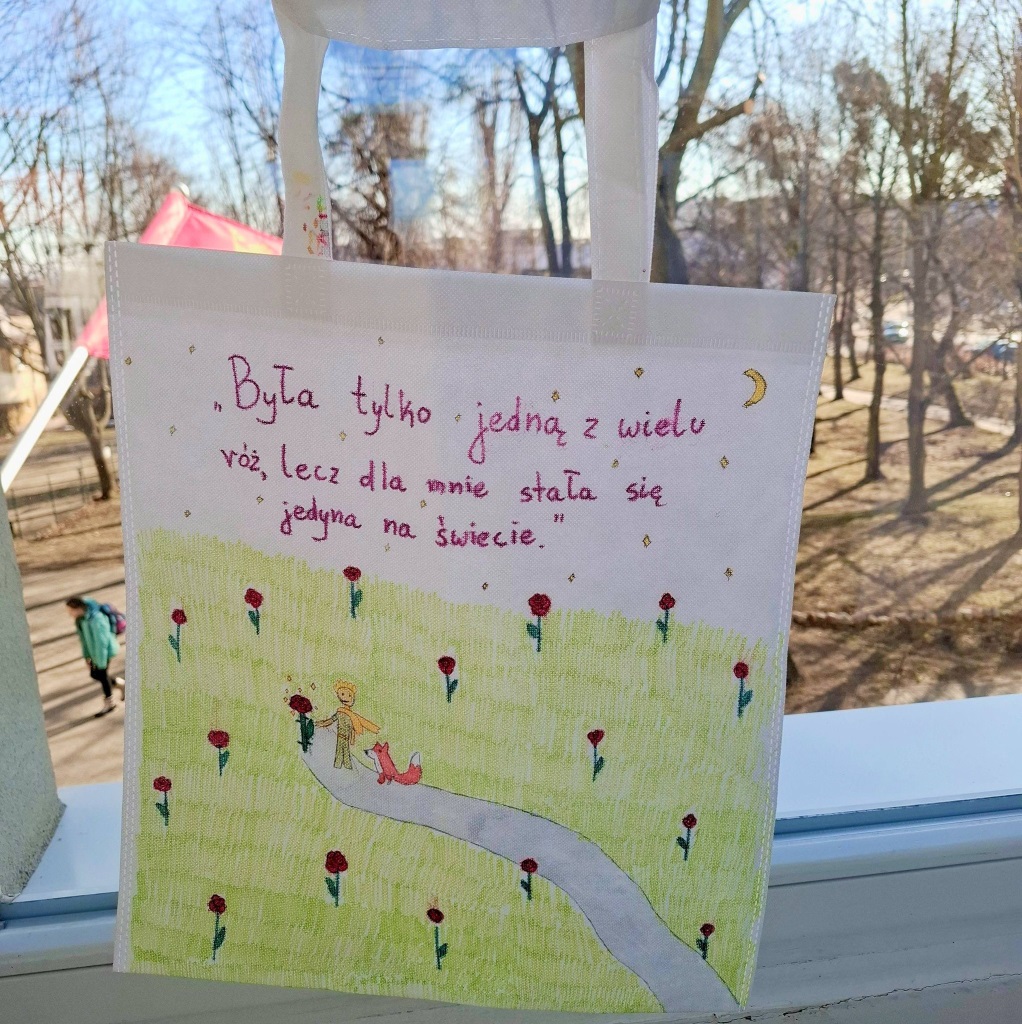 „Była tylko jedną z wielu
róż, lecz dla mnie stała się
jedyna na świecie."